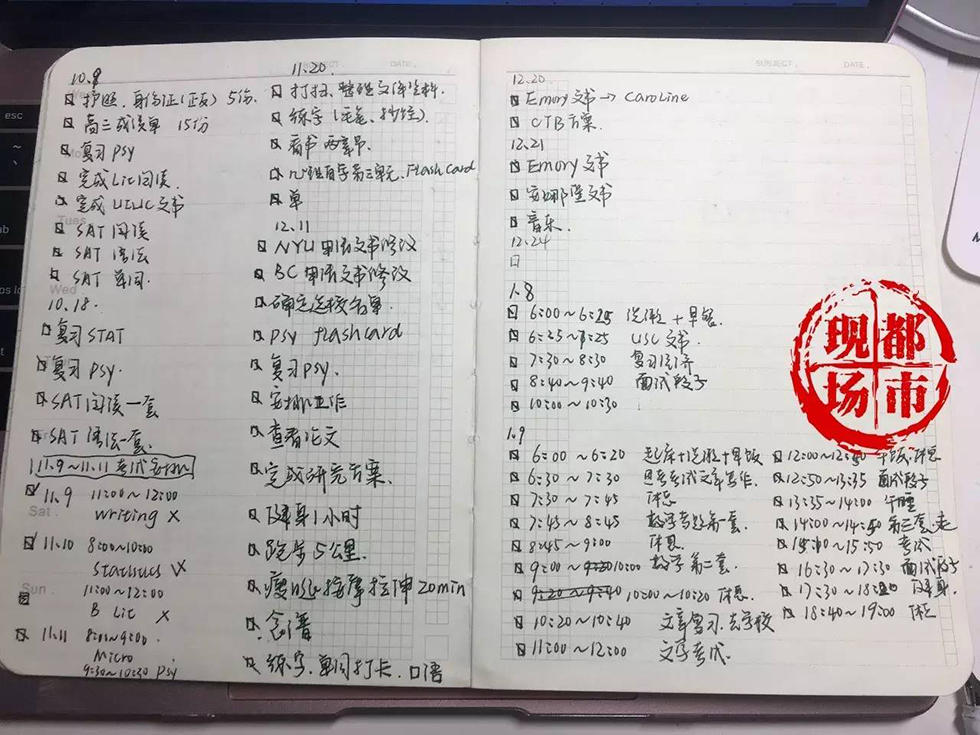 10.8
护照、身份证(正反) 5份.
高三成绩单 15份
复习 psy
完成 Lit 阅读.
完成 UIUC 文书
SAT 阅读
SAT 语法
SAT 单词.
10.18.
复习 STAT
复习 psy.
SAT 阅读一套
SAT 语法一套.
11.9~11.11 考试
11.9 11:00~12:00
writing X
11.10 8:00~10:00
Statistics
11:00~12:00
B Lit X
11.11 8:00~9:00.
Micro
9:30~10:30 Psy
11.20
打扫、整理文件资料.
练字
看书 两章节.
心理自学第三单元. Flash Card
单
12.11
NYU 申请文书修改
BC 申请文书修改
确定选校名单.
psy flashcard
复习 psy.
安排工作
查看论文
完成研究方案.
健身 1 小时
跑步 5 公里.
瘦腿按摩拉伸 20min
念谱
练字、单词打卡、口语
SUBJECT. DATE.
12.20
Emory 文书 → Caroline
CTB 方案.
12.21
Emory 文书
安娜堡文书
音乐.
12.24
1.8
6:00~6:25 洗漱+早餐.
6:25~7:25 USC 文书.
7:30~8:30 复习经济
8:40~9:40 面试
10:00~10:30
1.9
6:00~6:20 起床+洗漱+早饭
6:30~7:30
7:30~7:45 休息
7:45~8:45 数学 第一套.
8:45~9:00 休息.
9:00~10:00 数学 第二套.
10:00~10:20 休息.
10:20~10:40 文章复习.去学校
11:00~12:00 文学考试.
12:00~12:50 午饭、休息
12:50~13:35 面试
13:35~14:00 午睡
14:00~14:50 第三套
15:10~15:50 考试
16:30~17:30 面试
17:30~18:30 健身.
18:40~19:00 休息
都市现场
esc
Sat.
Sun
Tues